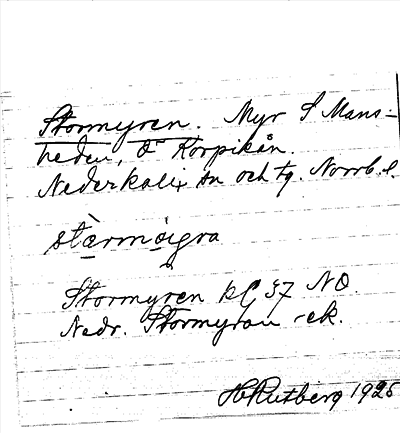 Stormyren. Myr S Mans-
heden, Ö Korpikån.
Nederkalix sn och tg. Norrb. l.
stɑ̀rmøigra
Stormyren kbl 37 NO.
Nedr. Stormyran -ek.
H Rutberg 1925